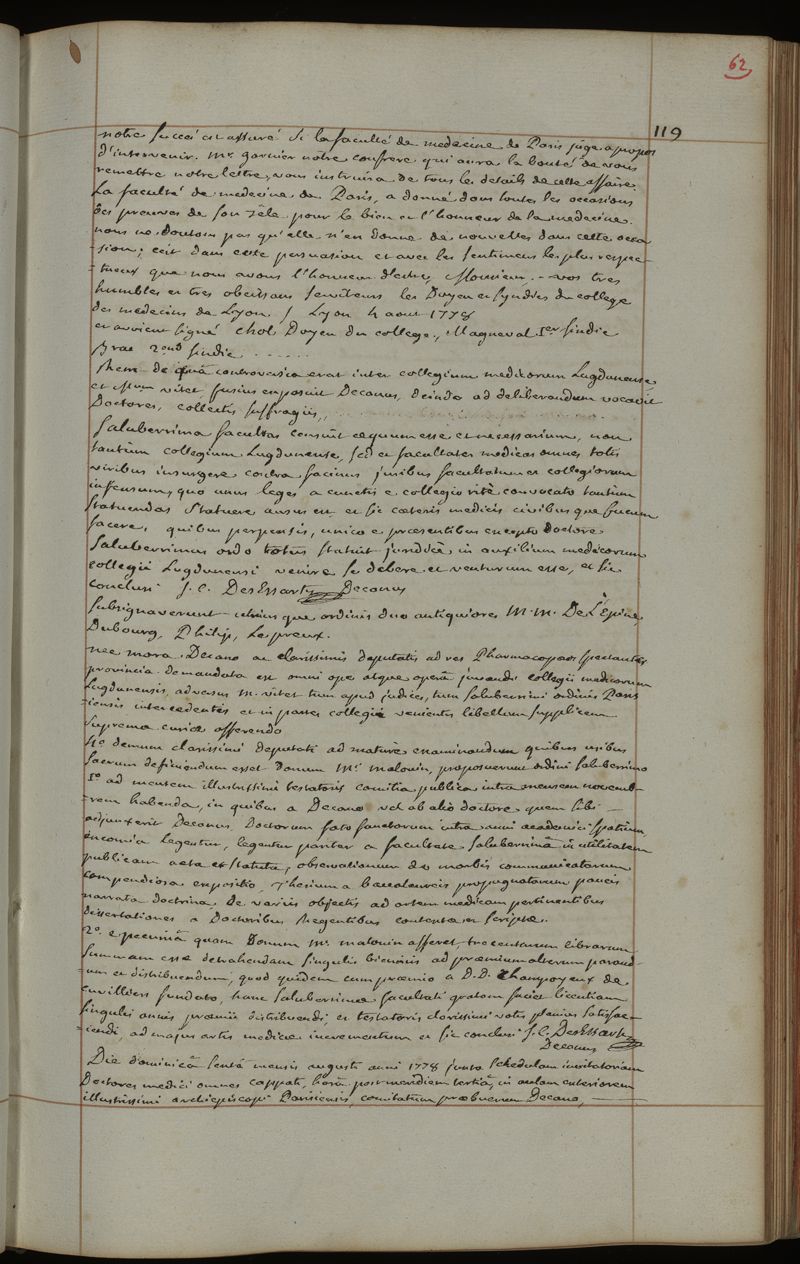 62
119
notre succès est assuré si la faculté de medecine de Paris juge apropos
d'intervenir. Mr. garnier notre confrere qui aura la bonté de vous
remettre notre lettre, vous instruira de tous les details de cette affaire.
La faculté de medecine de Paris, a donné dans toutes les occasions
des preuves de son zêle pour le bien et l'honneur de la medecine.
nous ne doutons pas qu'elle n'en donne de nouvelles dans cette occa
-sion; c'est dans cette persuasion et avec les sentimens les plus respec-
-tueux que nous avons l'honneur d'estre, Monsieur. - vos tres
humbles et tres obeissans serviteurs les Doyen et syndics du college
des medecins de Lyon. / Lyon 4 aout 1778
et avoient signé chol Doyen du college, Magneval 1er sindic
Brac 2end sindic . . . . . .
Rem de quâ controversia erat inter collegium medicorum Lugdunense
et Mum vitet fusius exposuit Decanus, deinde ad deliberandum vocavit
Doctores, collectis suffragiis,
Saluberrima facultas censuit aequum esse et necessarium, non
tantum collegium Lugdunense, sed et facultates medicas omnes totis
viribus insurgere contra facinus juribus facultatum et collegiorum
infensum, quo unus leges a cunctis e collegio ritè convocato tantum
statuendas statuere ausus est et sic caeteris medicis civibusque fucum
facere, quibus perpensis, unico e praesentibus excepto doctore
Saluberrimus ordo totus statuit juridicè in auxilium medicorum
collegii Lugdunensi venire se debere et venturum esse, et sic
conclusi J. C. DesEssartz Decanus
subsignaverunt utriusque ordinis duo antiquiores M. M. De L'Epine
Dubourg, Philip, Lepreux.
nec mora. Decano ac clarissimis deputatis ad res Pharmacopaeos spectantes
provincia demandata est omni ope atque operâ juvandi collegii medicorum
Lugdunensis, adversus m. vitet tum apud judices, tum saluberrimi ordinis Paris
-iensis intercedentis et in partes collegii venientis libellum supplicem
supremae curiae offerendo
4o. demum clarissimi deputati ad maturè examinandum quibus usibus
sacrum definiendum esset donum Mi. malouin, proposuerunt ordini saluberrimo
1o. ad mentem illustrissimi testatoris comitia publica intra mensem novemb-
-rem habenda, in quibus a Decano vel ab alio doctore quem sibi -
adjunxerit Decanus, Doctorum fato functorum intra anni academici spatium
encomia legentur, legentur pariter a facultate saluberrimâ in utilitatem
publicam acta et statuta, observationum de morbis communicatarum
compendiosa expositio, Thesium a baccalaureis propugnatarum paucis
narrata doctrina, de variis objectis ad artem medicam pertinentibus
dissertationes a Doctoribus Regentibus contextae et scriptae.
2o. e pecuniâ quam donum Mi. malouin afferet, trecentarum librarum
summam esse detrahendam singulis bienniis ad praemium alterum parand-
-um et distribuendum, quod quidem cum praemio a D. D. Thampoyeux de
cuvilliers fundato, hanc saluberrimae facultati gratam faciet licentiam
singulis annis praemii distribuendi, et testatoris clarissimi votis plenius satisfac-
-iendi, ad majus artis medicae incrementum et sic conclusi J. C. DesEssartz
Decanus
Die dominicâ sextâ mensis augusti anni 1778 juxta schedulam invitatoriam
Doctores medici omnes cappati, horâ post meridiem tertiâ, in aulam exteriorem
illustrissimi archiepiscopi Parisiensis, comitatum praebuerunt Decano,